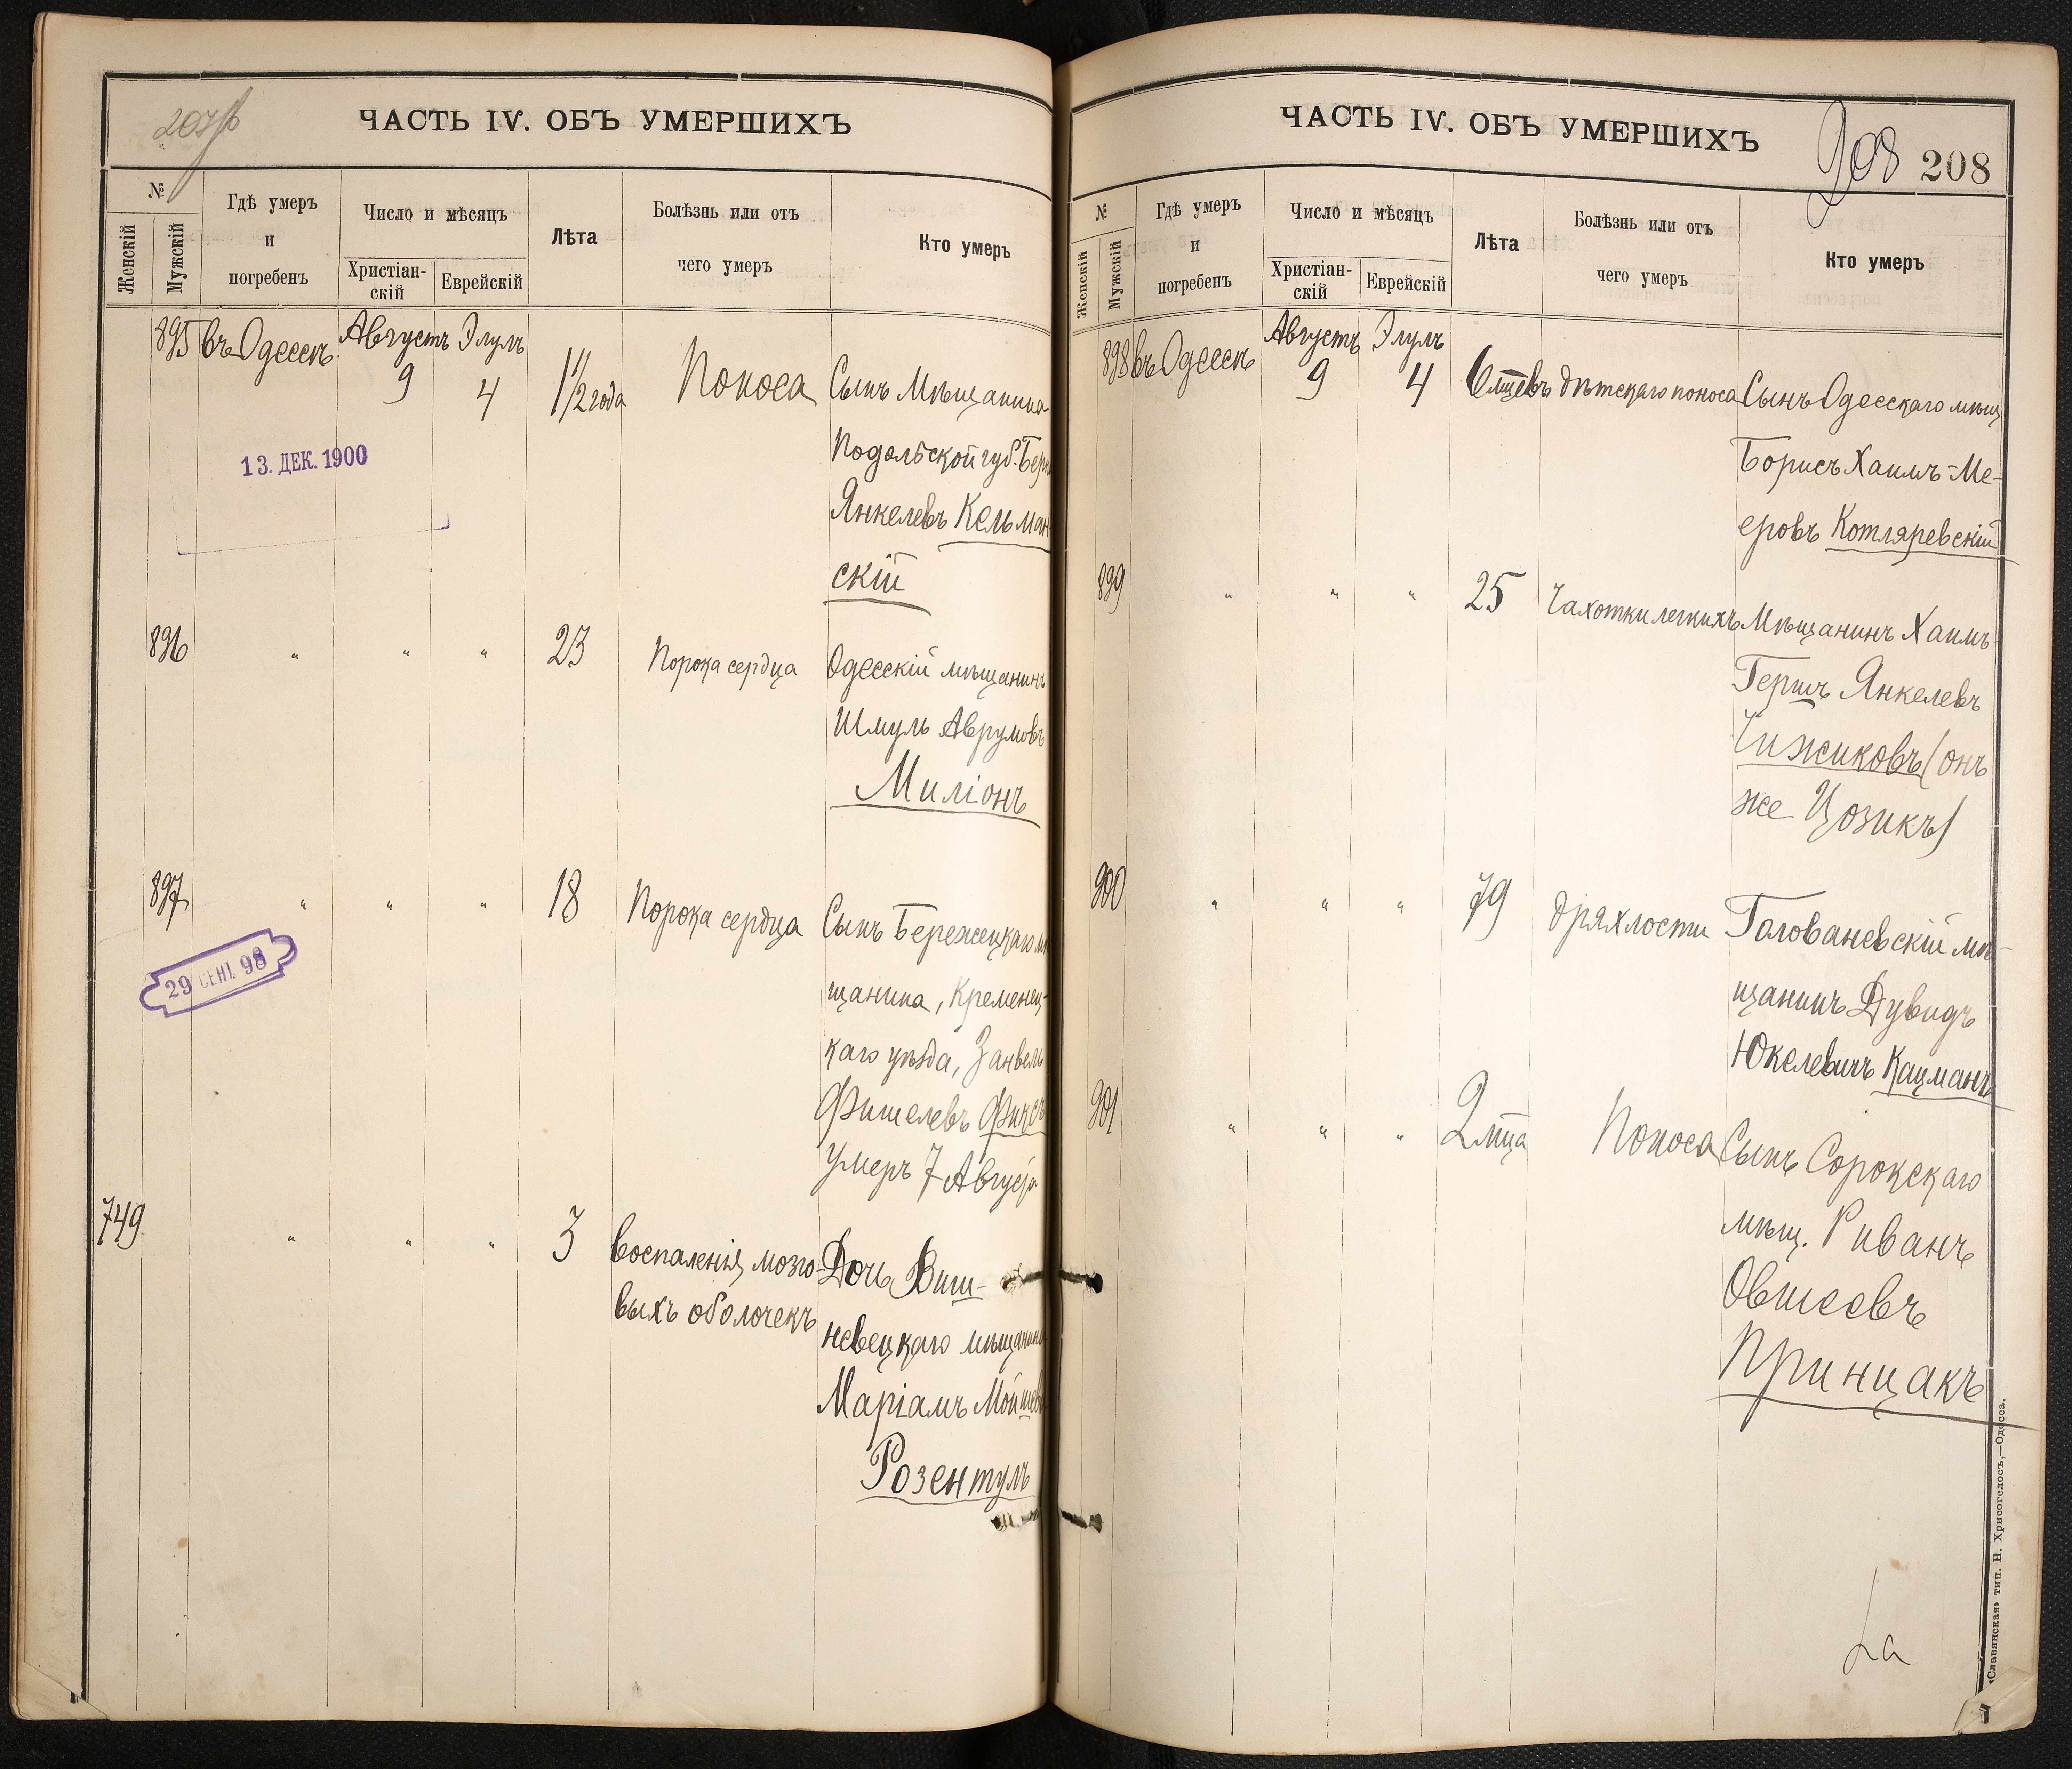 207
ЧАСТЬ IV. ОБЪ УМЕРШИХЪ
№
Женскій
Мужскій
Гдѣ умеръ
и
погребенъ
Число и мѣсяцъ
Христіан-
скій
Еврейскій
Лѣта
Болѣзнь или отъ
чего умеръ
Кто умеръ
895 въ Одессѣ Августъ 9 Элулъ 4 1 1/2 года Поноса Сынъ Мѣщанина
Подольской губ.
Янкелевъ Кельман
скій
13. ДЕК. 1900
896 " " " 23 Порока сердца Одесскій мѣщанинъ
Шмуль Аврумовъ
Миліонъ
897 " " " 18 Порока сердца Сынъ Бережецкаго мѣ
щанина, Кременец-
каго уѣзда, Занвель
Фишелевъ
умеръ 7 Августа
29 СЕНТ. 98
749 " " " 3 воспаленія мозго- Дочь Виш-
выхъ оболочекъ невецкаго мѣщанина
Маріамъ
Розентулъ
ЧАСТЬ IV. ОБЪ УМЕРШИХЪ
208 208
№
Женскій
Мужскій
Гдѣ умеръ
и
погребенъ
Число и мѣсяцъ
Христіан-
скій
Еврейскій
Лѣта
Болѣзнь или отъ
чего умеръ
Кто умеръ
898 въ Одессѣ Августъ 9 Элулъ 4 6 мцевъ дѣтскаго поноса Сынъ Одесскаго мѣщ
Борисъ Хаимъ-Ме-
еровъ Котляревскій
899 " " " 25 Чахотки легкихъ Мѣщанинъ Хаимъ-
Гершъ Янкелевъ
Чижиковъ (онъ
же Цозикъ)
900 " " " 79 дряхлости Голованевскій мѣ-
щанинъ Дувидъ
Юкелевичъ Кацманъ
901 " " " 2 мца Поноса Сынъ Сорокскаго
мѣщ. Риванъ
Овшеевъ
Принцакъ
«Славянская» тип. Н. Хрисогелосъ,—Одесса.